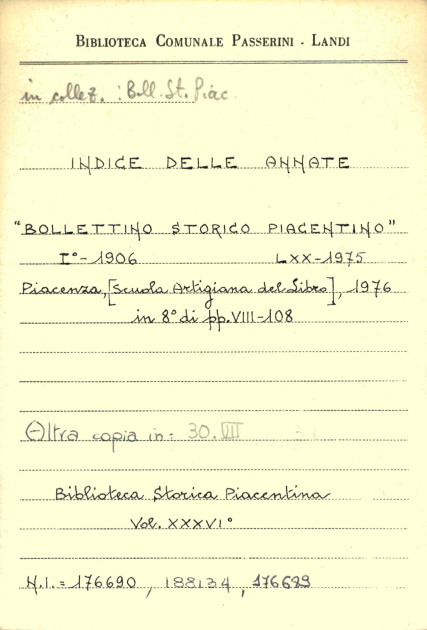 BIBLIOTECA COMUNALE PASSERINI - LANDI
in collez. : Boll. St. Piac.
INDICE DELLE ANNATE
"BOLLETTINO STORICO PIACENTINO"
I°- 1906 LXX-1975
Piacenza, [Scuola Artigiana del Libro], 1976
in 8° di pp. VIII-108
Altra copia in: 30. VIII
Biblioteca Storica Piacentina
Vol. XXXVI°
N.I. = 176690, 188134, 176689